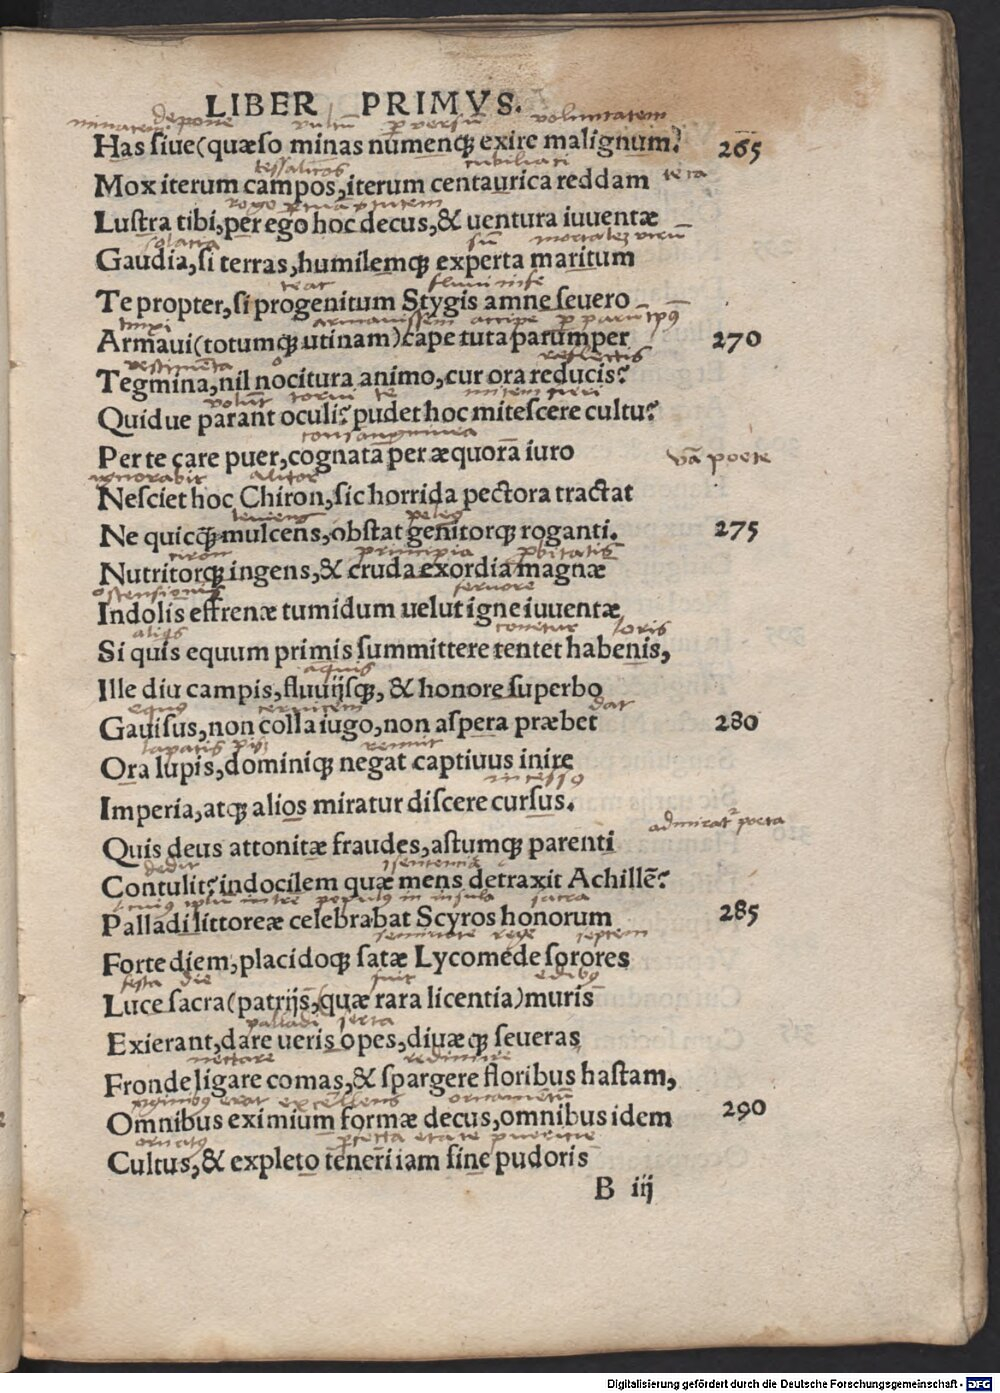 LIBER PRIMVS.
depone vultū voluntatem
Has siue (quæso minas numenq; exire malignum? 265
tessalicos
Mox iterum campos, iterum centaurica reddam
rogo
Lustra tibi, per ego hoc decus, & uentura iuuentæ
solatia
Gaudia, si terras, humilemq; experta maritum
Te propter, si progenitum Stygis amne seuero
armauissem accipe
Armaui (totumq; utinam) cape tuta parumper 270
vestimēta reflectis
Tegmina, nil nocitura animo, cur ora reducis?
volūt torui te
Quidue parant oculi? pudet hoc mitescere cultu?
consanguinea
Per te care puer, cognata per æquora iuro
poete
ignorabit altior
Nesciet hoc Chiron, sic horrida pectora tractat
leniens
Ne quicq̃ mulcens, obstat genitorq; roganti. 275
principia
Nutritorq; ingens, & cruda exordia magnæ
feruore
Indolis effrenæ tumidum uelut igne iuuentæ
conetur loris
Si quis equum primis summittere tentet habenis,
aquis
Ille diu campis, fluuijsq;, & honore superbo
ceruicem dat
Gauisus, non colla iugo, non aspera præbet 280
rennuit
Ora lupis, dominiq; negat captiuus inire
Imperia, atq; alios miratur discere cursus.
poeta
Quis deus attonitæ fraudes, astumq; parenti
dedit
Contulit? indocilem quæ mens detraxit Achillē?
in insula sacra
Palladi littoreæ celebrabat Scyros honorum 285
rege septem
Forte diem, placidoq; satæ Lycomede sorores
festa die
Luce sacra (patrijs, (quæ rara licentia) muris
palladi serta
Exierant, dare ueris opes, diuæq; seueras
redimire
Fronde ligare comas, & spargere floribus hastam,
erat excellens ornamētū
Omnibus eximium formæ decus, omnibus idem 290
etate puericie
Cultus, & expleto teneri iam fine pudoris
B iij
Digitalisierung gefördert durch die Deutsche Forschungsgemeinschaft - DFG